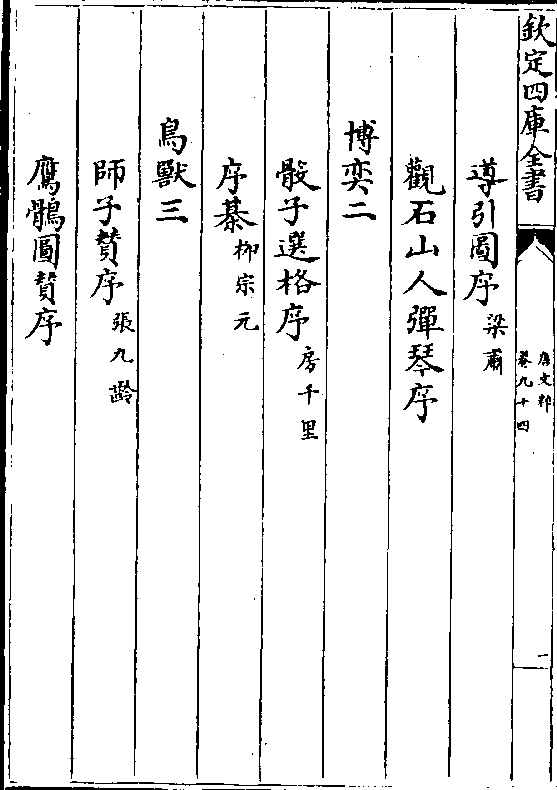 欽定四庫全書
唐文粹
卷九十四
一
導引圖序梁肅
觀石山人彈琴序
博奕二
骰子選格序房千里
序棊柳宗元
鳥獸三
師子賛序張九齡
鷹鶻圖賛序